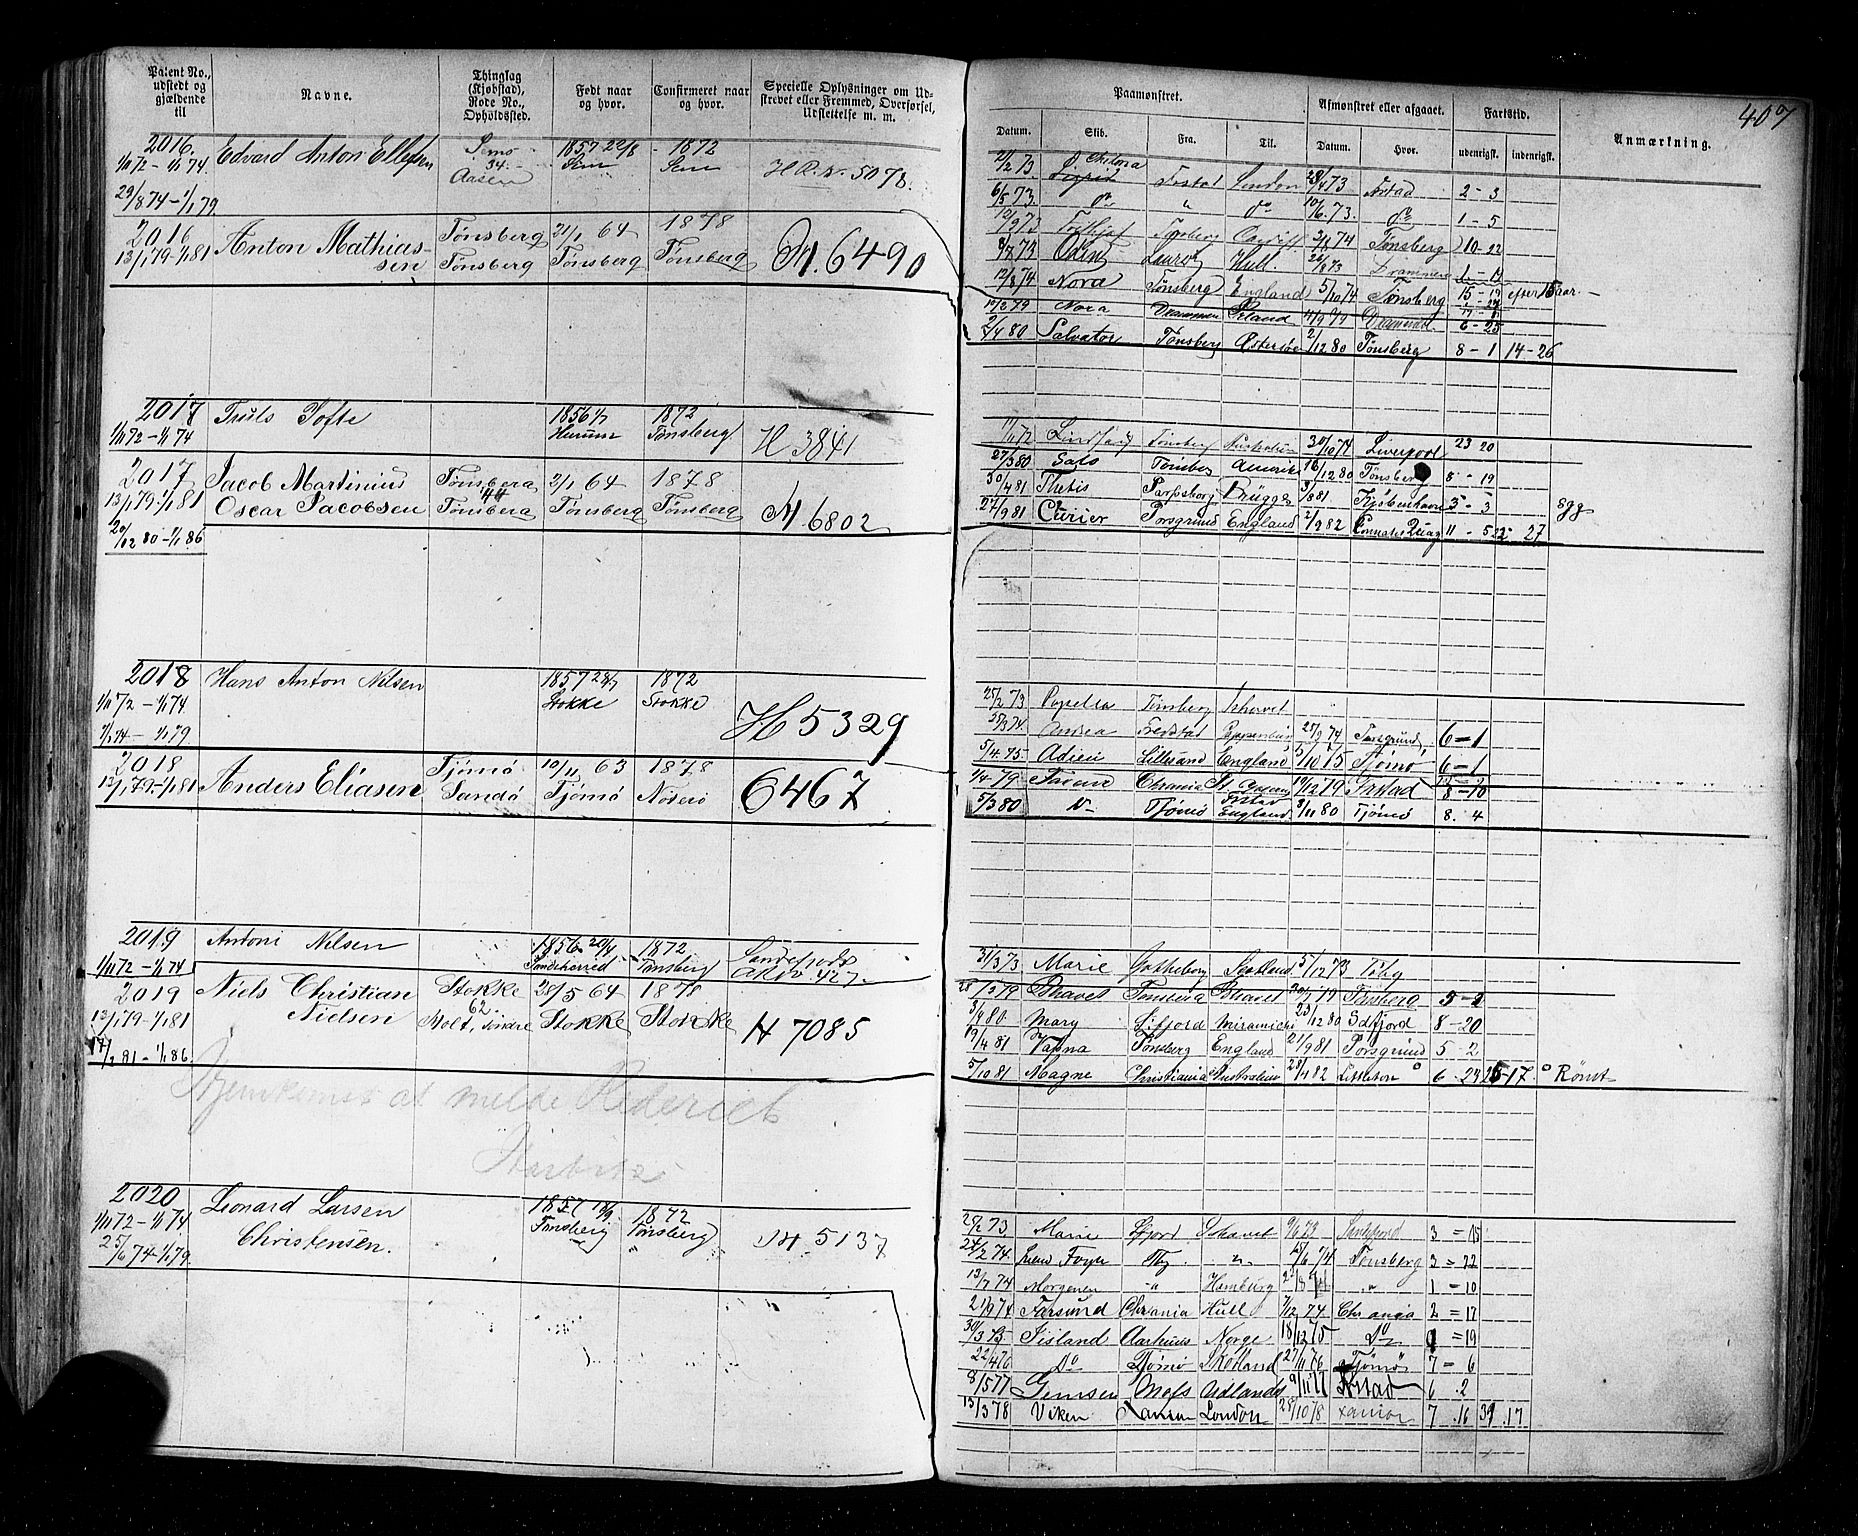 407
Patent No., udstedt og gjældende til
Navne.
Thinglag (Kjøbstad), Rode No., Opholdssted.
Født naar og hvor.
Confirmeret naar og hvor.
Specielle Oplysninger om Udskrevet eller Fremmed, Overførsel, Udslettelse m. m.
Paamønstret.
Afmønstret eller afgaaet.
Fartstid.
Anmærkning.
Datum. Skib. Fra. Til. Datum. Hvor. udenrigsk. indenrigsk.
2016. Edvard Anton Ellefsen Semo 34. Aasen 1857 22/8 Sem 1872 Sem H.R. Nr. 5078.
1/11 72 - 1/1 74
29/8 74 - 1/1 79.
6/5 73. do " do 10/6 73. do 1 - 5
8/7 73 Odin Laurvig Hull. 26/8 73 Drammen 1 - 19
12/8 74 Nora Tønsberg England 5/10 74 Tønsberg 15 - 19 efter 15 aar. -
2016 Anton Mathiassen Tønsberg Tønsberg 21/1 64 Tønsberg 1878 Tønsberg M. 6490
13/1 79 - 1/1 81
12/2 79 Nora Drammen 4/9 79 Drammen 6 - 25
2/4 80 Salvator Tønsberg Østersøe 2/12 80 Tønsberg 8 - 1 14 - 26
2017 Truls Tofte 1856 Hurum 1872 Tønsberg H 3841
1/11 72 - 1/1 74
17/11 72 Tønsberg 30/10 74 Liverpool 23 20
2017 Jacob Martinius Oscar Jacobsen Tønsberg 44 Tønsberg 2/1 64 Tønsberg 1878 Tønsberg M 6802
13/1 79 - 1/1 81
20/12 80 - 1/1 86
27/3 80 Tønsberg Amerika 16/12 80 Tønsberg 8 - 19
30/4 81 Thetis Sarpsborg Brügge 3/8 81 Kjøbenhavn 3 - 3
27/9 81 Curier Porsgrund England 2/9 82 11 - 5 22 - 27
2018 Hans Anton Nilsen 1857 Stokke 1872 Stokke H 5329
1/11 72 - 1/1 74
7/1 74 - 1/1 79
25/2 73 Tønsberg
Andrea Fredstat 27/9 74 Porsgrund, 6 = 1
5/4 75 Lillesand England 5/10 75 Tjømø 6 = 1
2018 Anders Eliasen Tjømø Sandø 10/11 63 Tjømø 1878 Nøterø 6467
13/1 79 - 1/1 81
1/4 79 Favour Chrania 19/12 79 Frstad 8 - 10
5/3 80 Do Tjømø England 3/11 80 Tjømø 8. 4
2019 Antoni Nilsen 1856 20/4 Sandeherred 1872 Tønsberg Sandefjords 427
1/11 72 - 1/1 74
31/3 73 Marie Gotheborg Skotland 5/12 73
2019 Niels Christian Nielsen Stokke 62 Holt, Søndre 28/5 64 Stokke 1878 Stokke H 7085
13/1 79 - 1/1 81
17/2 81 - 1/1 86.
Tønsberg Tønsberg 5 - 2
3/4 80 Mary Sifjord Miramichi 23/12 80 Sdfjord 8 - 20
19/4 81 Vapna Tønsberg England 21/9 81 Porsgrund 5 - 2
5/10 81 Magne Christiania Australien 28/4 82 Littleton o 6 - 24 25 - 17. o Rømt
Hjemkomst at melde Rederiet
2020 Leonard Larsen Christensen. 1857 18/9 Tønsberg 1872 Tønsberg M 5137
1/11 72 - 1/1 74
25/6 74 - 1/1 79.
Marie Sfjord Ishavet 9/6 73 Sandefjord 3 = 15
24/2 74. Svend Foyn Tbg. " 25/6 74 Tønsberg 3 = 22
13/7 74 Morgenen " Hamburg " 1 = 10
21/9 74 Farsund Chrania Hull 7/12 74 Chrania 2 = 17
30/3 75 Iisland Aarhuus Norge 18/12 75 Do = 19
22/4 76 Do Tjømø Skotland 27/11 76 Tjømø 7 = 6
8/5 77 Gemsen Moss Udlandet 9/11 77 Frstad 6 . 2
13/3 78 Viken London 28/10 78 7 . 16 39 . 17